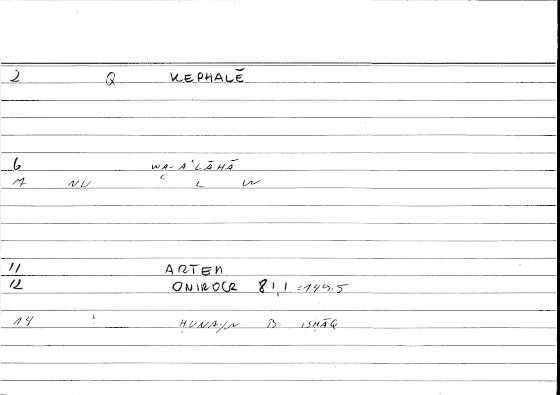 2 Q KEPHALĒ
6 WA-AʿLĀHĀ
NU L W
11 ARTEM
12 ONIROCR 8!,1 =149.5
14 ḤUNAYN B. ISḤĀQ